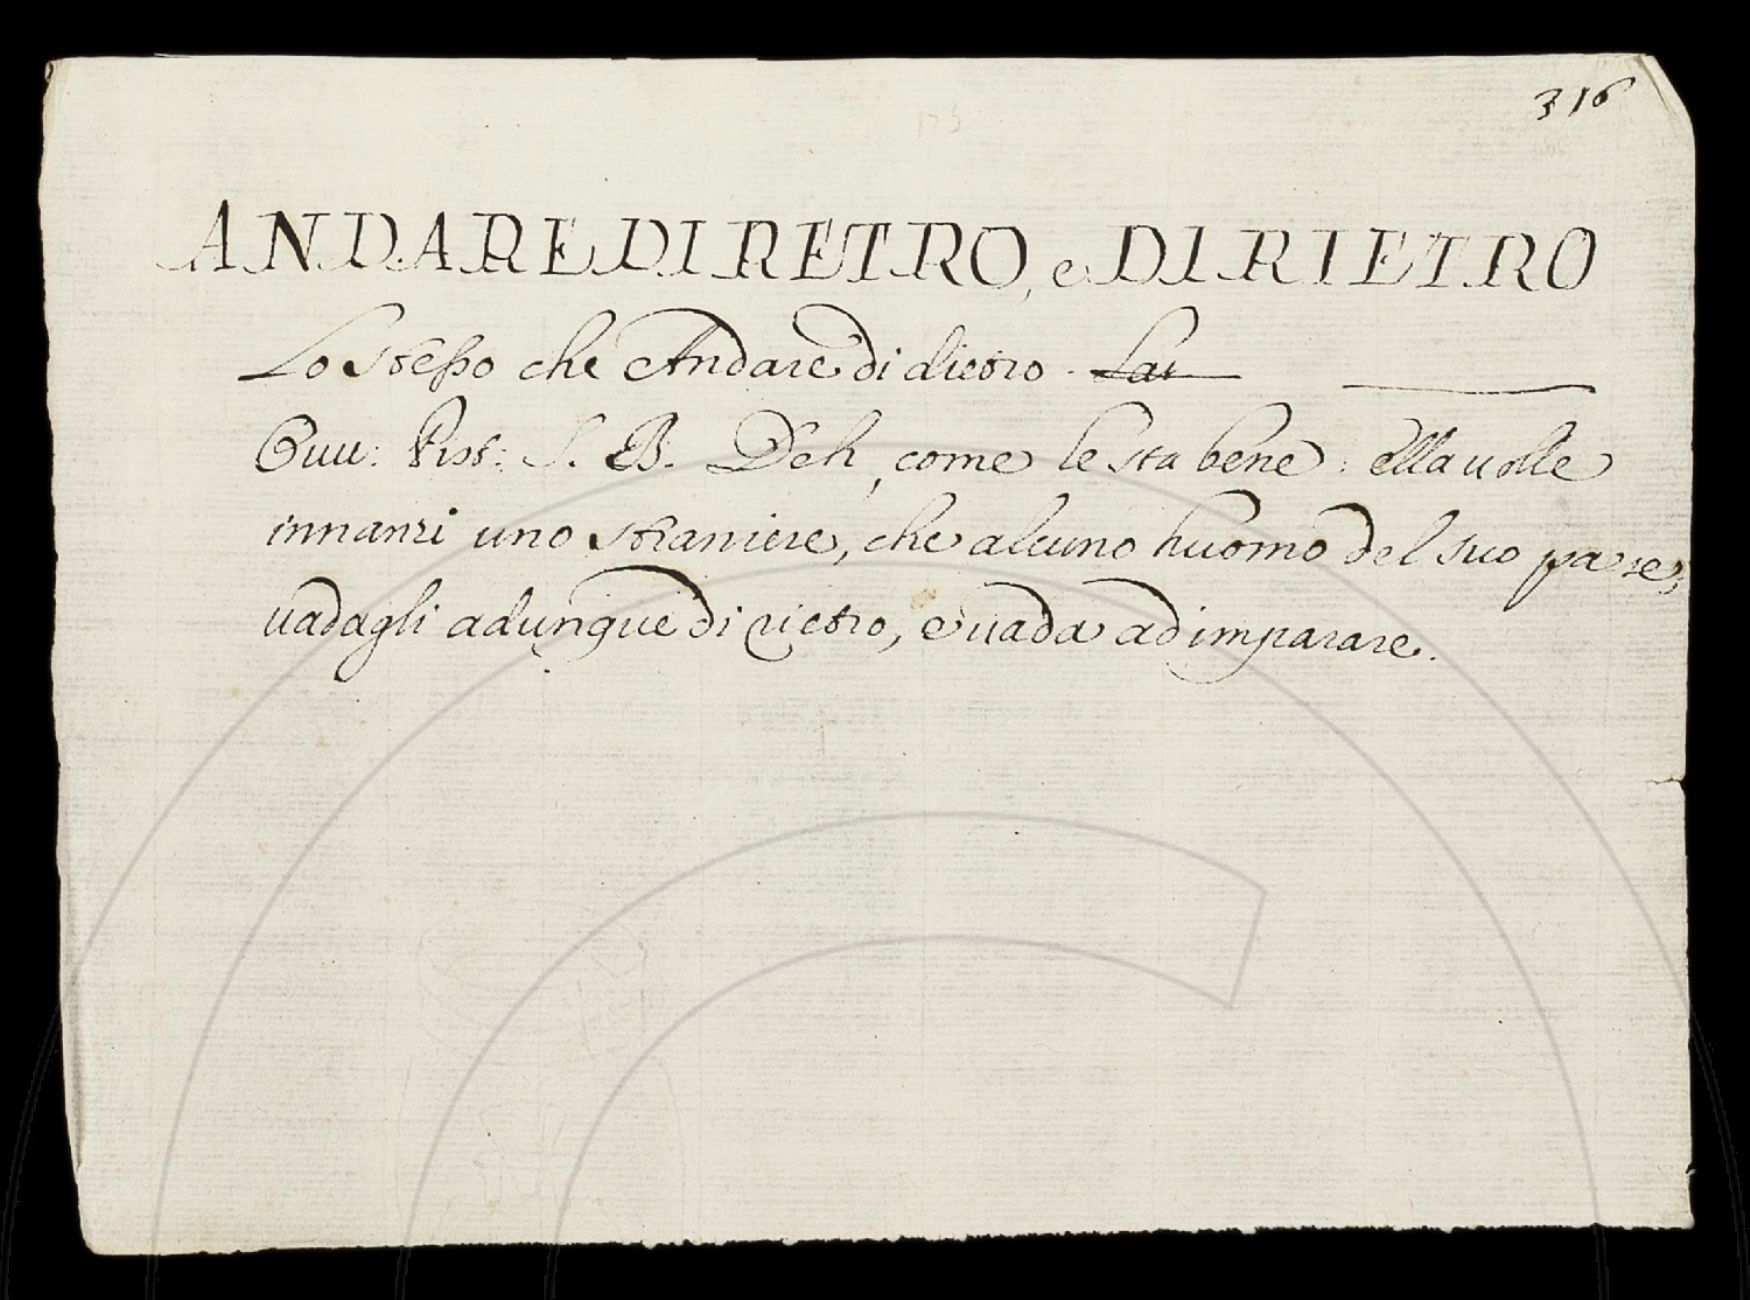 316
ANDARE DI RETRO, e DI RIETRO
Lo stesso che Andare di dietro. Lat
Guu: Pist: S. B. Deh, come le sta bene: ella uolle
innanzi uno straniere, che alcuno huomo del suo paese,
uadagli adunque di rietro, e uada ad imparare.